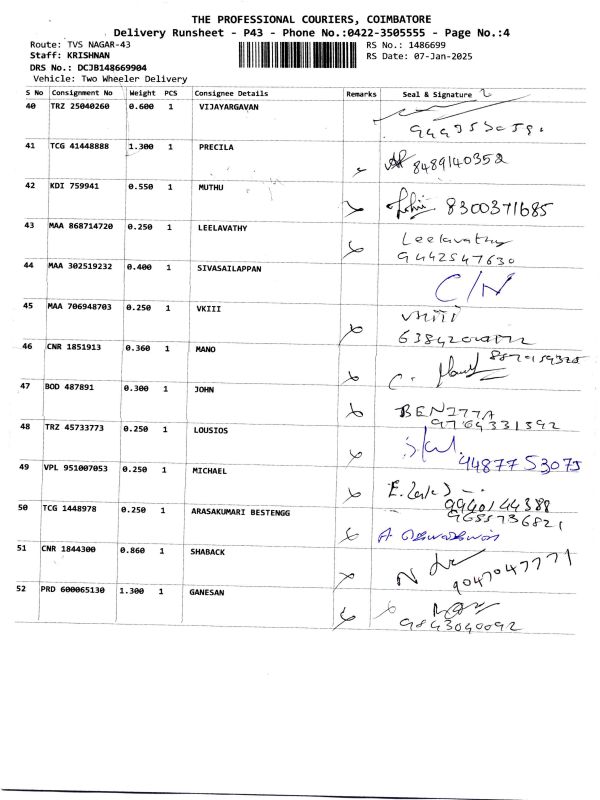 THE PROFESSIONAL COURIERS, COIMBATORE
Delivery Runsheet - P43 - Phone No.:0422-3505555 - Page No.:4
Route: TVS NAGAR-43 RS No.: 1486699
Staff: KRISHNAN RS Date: 07-Jan-2025
DRS No.: DCJB148669904
Vehicle: Two Wheeler Delivery
S No Consignment No Weight PCS Consignee Details Remarks Seal & Signature
40 TRZ 25040260 0.600 1 VIJAYARGAVAN
41 TCG 41448888 1.300 1 PRECILA
8489140352
42 KDI 759941 0.550 1 MUTHU
8300371685
43 MAA 868714720 0.250 1 LEELAVATHY
Leelavathy
9442547630
44 MAA 302519232 0.400 1 SIVASAILAPPAN
C/N
45 MAA 706948703 0.250 1 VKIII
VKIII
46 CNR 1851913 0.360 1 MANO
47 BOD 487891 0.300 1 JOHN
BENITTA
9764331392
48 TRZ 45733773 0.250 1 LOUSIOS
9487753075
49 VPL 951007053 0.250 1 MICHAEL
9940144388
50 TCG 1448978 0.250 1 ARASAKUMARI BESTENGG
9655736821
51 CNR 1844300 0.860 1 SHABACK
9047047771
52 PRD 600065130 1.300 1 GANESAN
9843040092